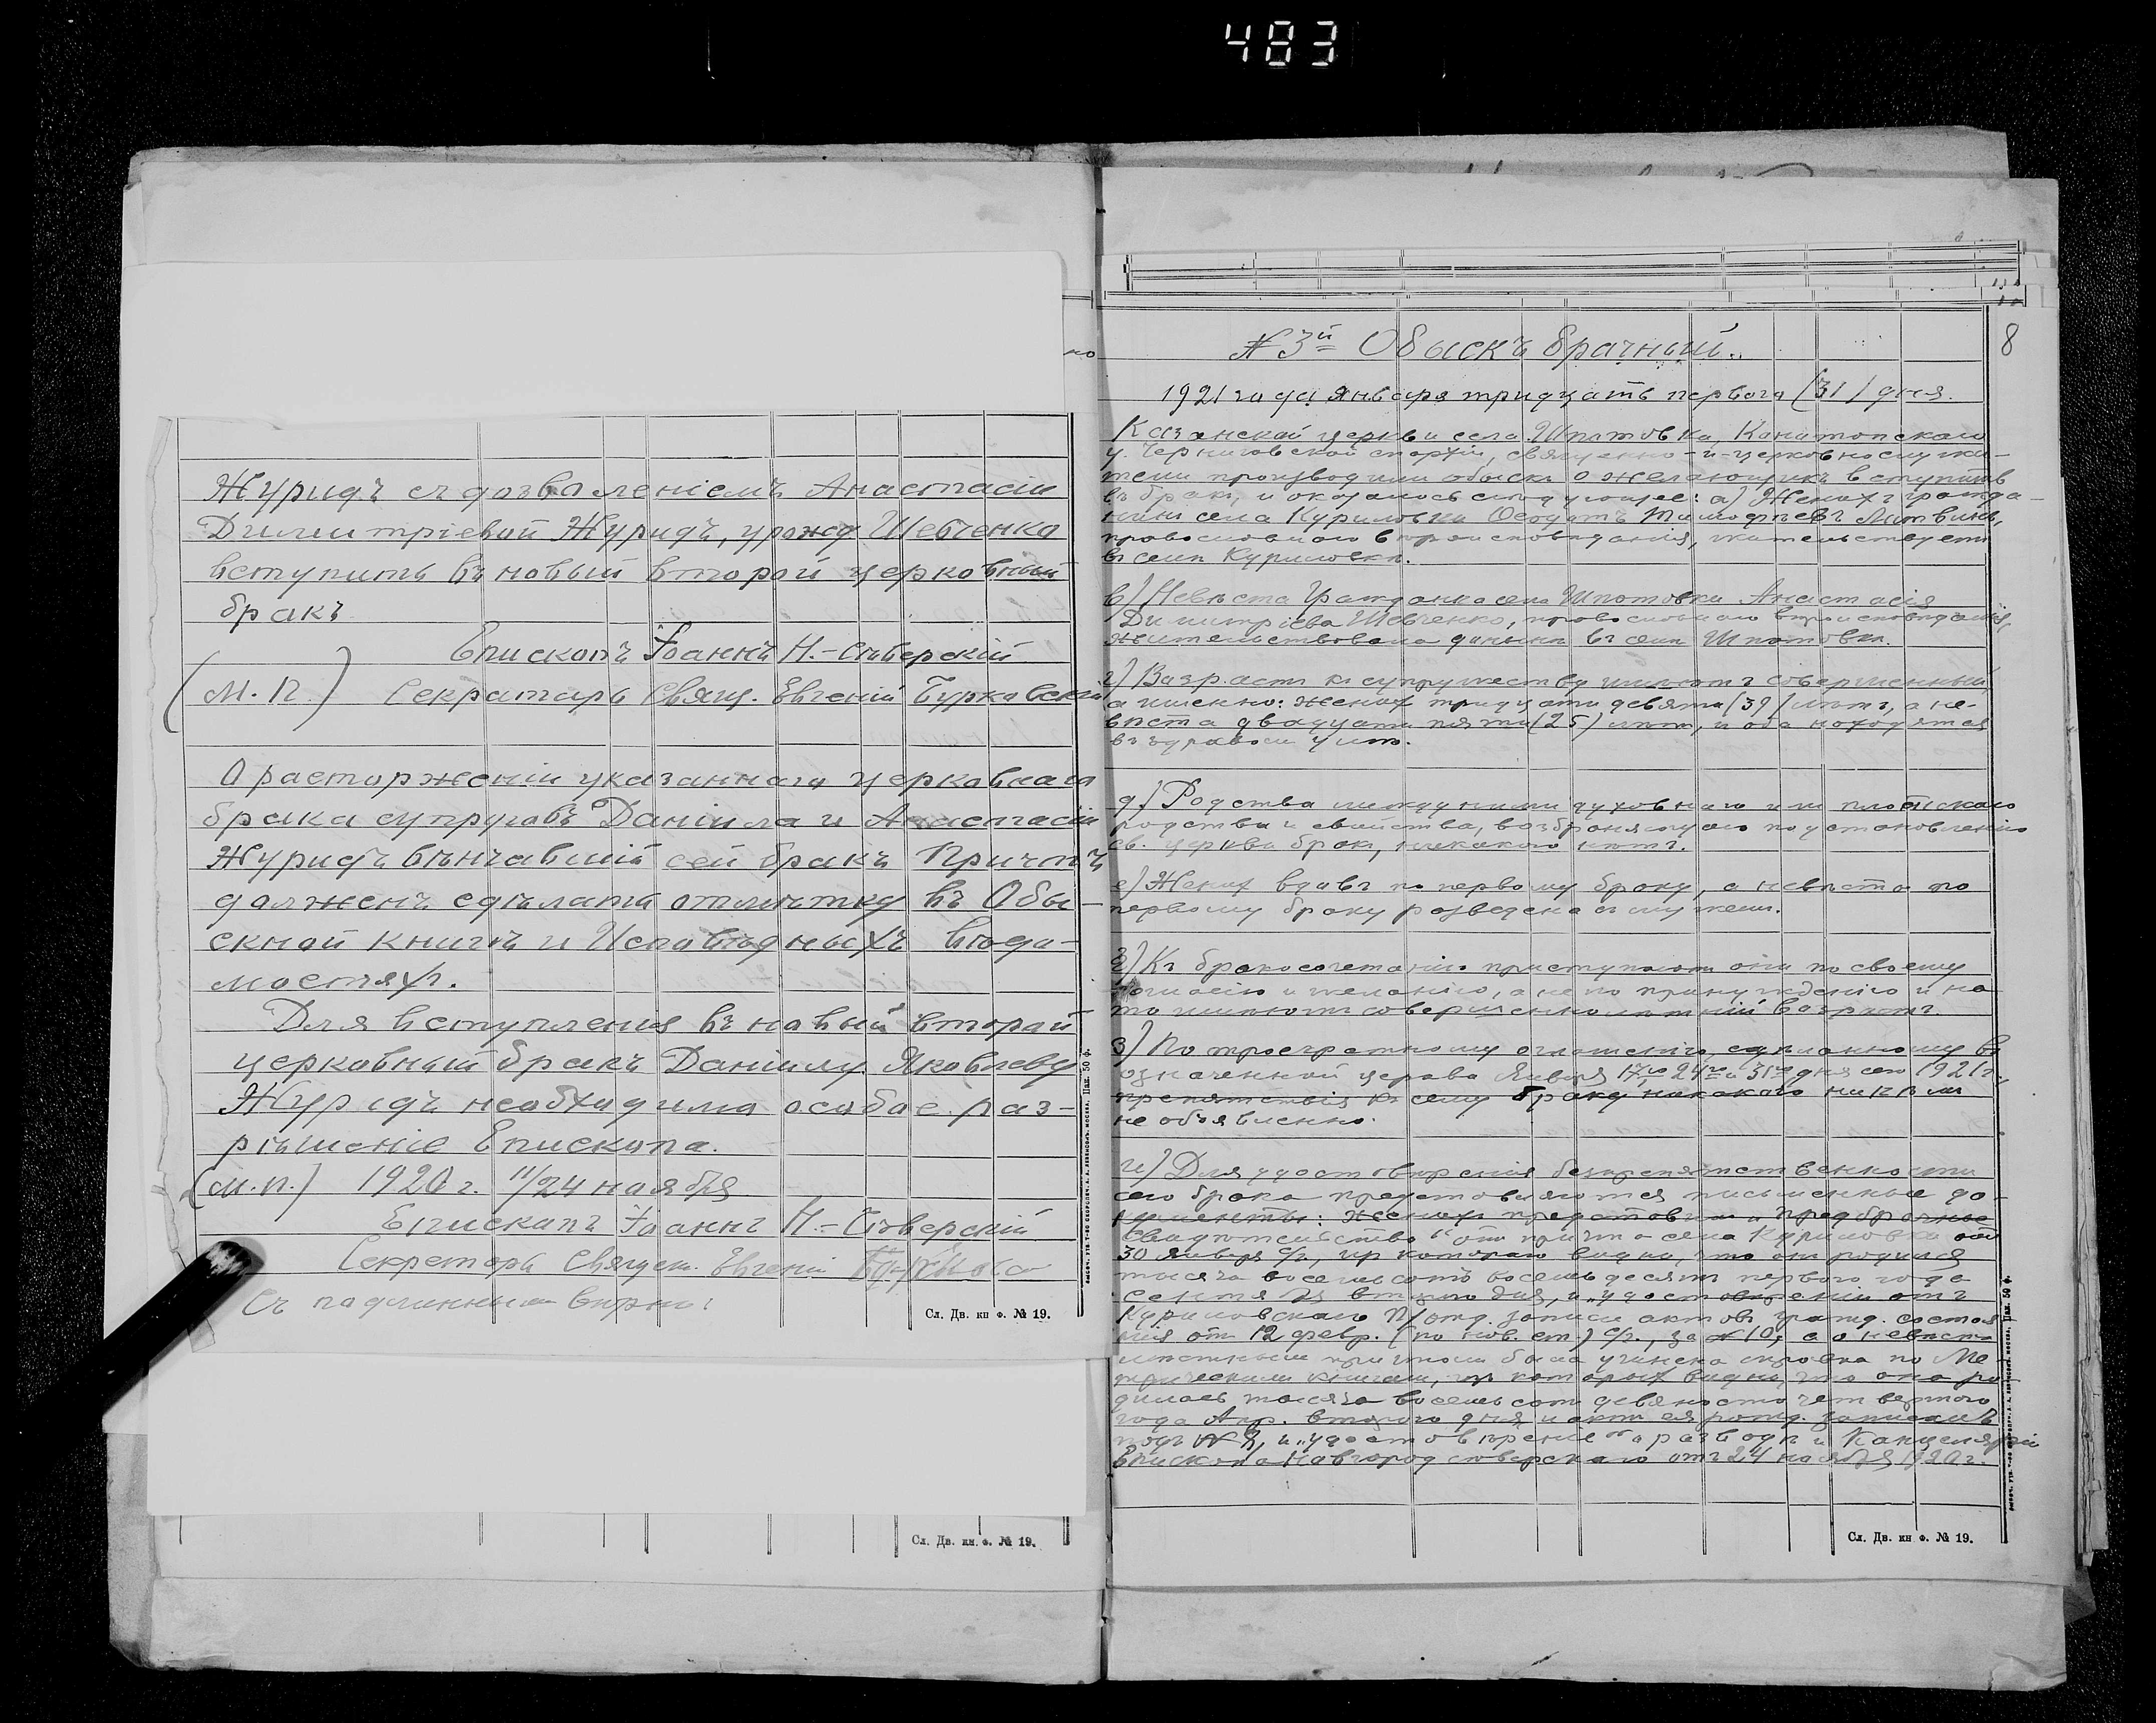 483
Журидъ съ дозволеніемъ Анастасіи
Димитріевой Журидъ, урожд Шевченко
вступить въ новый второй церковный
бракъ
Епископъ Іоаннъ Н.-Сѣверскій
(М.П.) Секратарь Свящ. Евгеній Бурковскій
О расторженіи указаннаго церковнаго
брака супруговъ Даніила и Анастасіи
Журидъ вѣнчавшій сей бракъ Причтъ
долженъ сдѣлать отмѣтку въ Обы-
скной книгѣ и Исповѣдныхъ вѣдо-
мостяхъ.
Для вступленія въ новый второй
церковный бракъ Даніилу Яковлеву
Журидъ необходимо особое раз-
рѣшеніе Епископа.
(М.П.) 1920 г. 11/24 ноября
Епископъ Іоаннъ Н.-Сѣверскій
Секретарь Священ. Евгеній
Съ подлиннымъ вѣрно:
Сл. Дв. кн ф. № 19.
Сл. Дв. кн. ф. № 19.
но
8
№ 3й Обыскъ брачный.
1921 года января тридцать первого (31) дня.
Казанской церкви села Шпотовка, Конотопскаго
у. Черниговской епархіи, священно-и-церковнослужи-
тели производили обыскъ о желающихъ вступить
въ бракъ, и оказалось слѣдующее: а) Женихъ гражда-
нинъ села Куриловки Тимофѣевъ Литвинъ,
православнаго вѣроисповѣданія, жительствуетъ
въ селѣ Куриловкѣ.
в) Невѣста Гражданка села Шпотовки Анастасія
Димитріева Шевченко, православнаго вѣроисповѣданія,
жительствовала донынѣ въ селѣ Шпотовкѣ.
г) Возрастъ къ супружеству имѣютъ совершенный,
а именно: женихъ тридцати девяти (39) лѣтъ, а не-
вѣста двадцати пяти (25) лѣтъ, и оба находятся
въ здравомъ умѣ.
д) Родства между ними духовнаго или плотскаго
родства и свойства, возбраняющаго по установленію
св. церкви бракъ, никакого нѣтъ.
е) Женихъ вдовъ по первому браку, а невѣста по
первому браку разведена съ мужемъ.
ж) Къ бракосочетанію приступаютъ они по своему
согласію и желанію, а не по принужденію и на
то имѣютъ совершеннолѣтній возрастъ.
з) По троекратному оглашенію, сдѣланному въ
означенной церкви Января 17го, 24го и 31го дня сего 1921 г.,
препятствія къ сему браку никакого никѣмъ
не объявлено.
и) Для удостовѣренія безпрепятственности
сего брака представляются письменные до-
кументы: женихъ представилъ и предбрачное
свидѣтельство отъ причта села Куриловки отъ
30 января с/г, изъ котораго видно, что онъ родился
тысяча восемьсотъ восемьдесятъ перваго года
сентября дня, и удостовѣреніе отъ
Куриловскаго П/отд. записи актовъ гражд. состоя-
нія отъ 12 февр. (по нов. ст.) с/г., за № 10, а о невѣстѣ
мѣстнымъ причтомъ была учинена справка по Ме-
трическимъ книгамъ, изъ которыхъ видно, что она ро-
дилась тысяча восемьсотъ девяносто четвертаго
года Апр. второго дня и актъ ея рожд. записанъ
подъ № и „удостовѣреніе“ о разводѣ и Канцелярии
Епископа Новгородсѣверскаго отъ 24 ноября 1920 г.
Сл. Дв. кн ф. № 19.